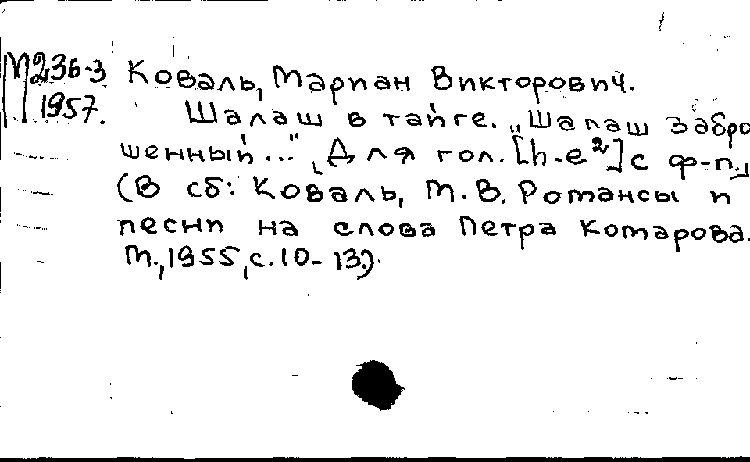 М236-3 Коваль, Мариан Викторович.
1957. Шалаш в тайге. „Шалаш забро
шенный...", Для гол. [h-e²] с ф-п.
(В сб: Коваль, М.В. Романсы и
песни на слова Петра Комарова.
М., 1955, с. 10-13.)